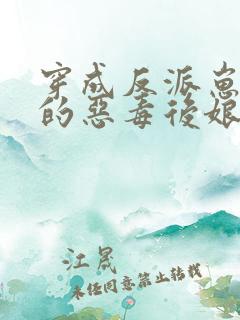 穿成反派崽
的惡毒後娘
江晟
未经同意禁止转载